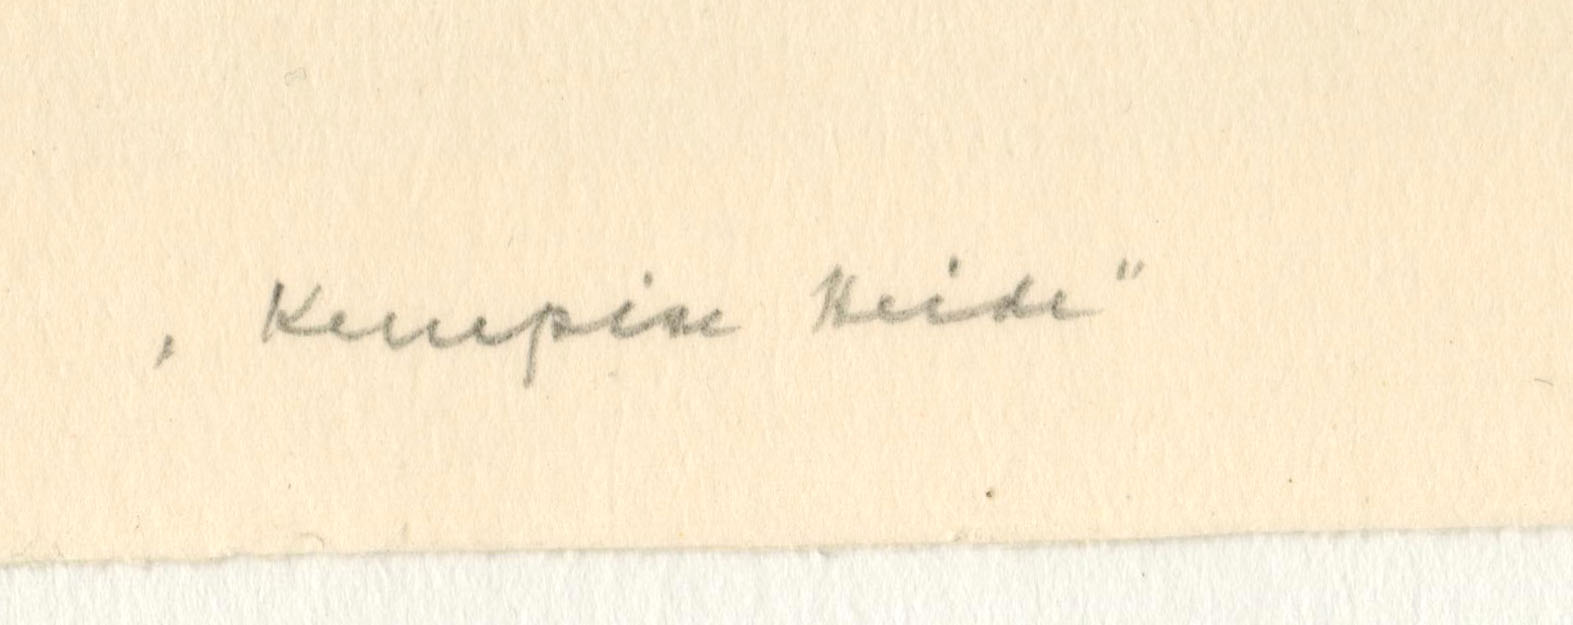 , Kempise Heide"